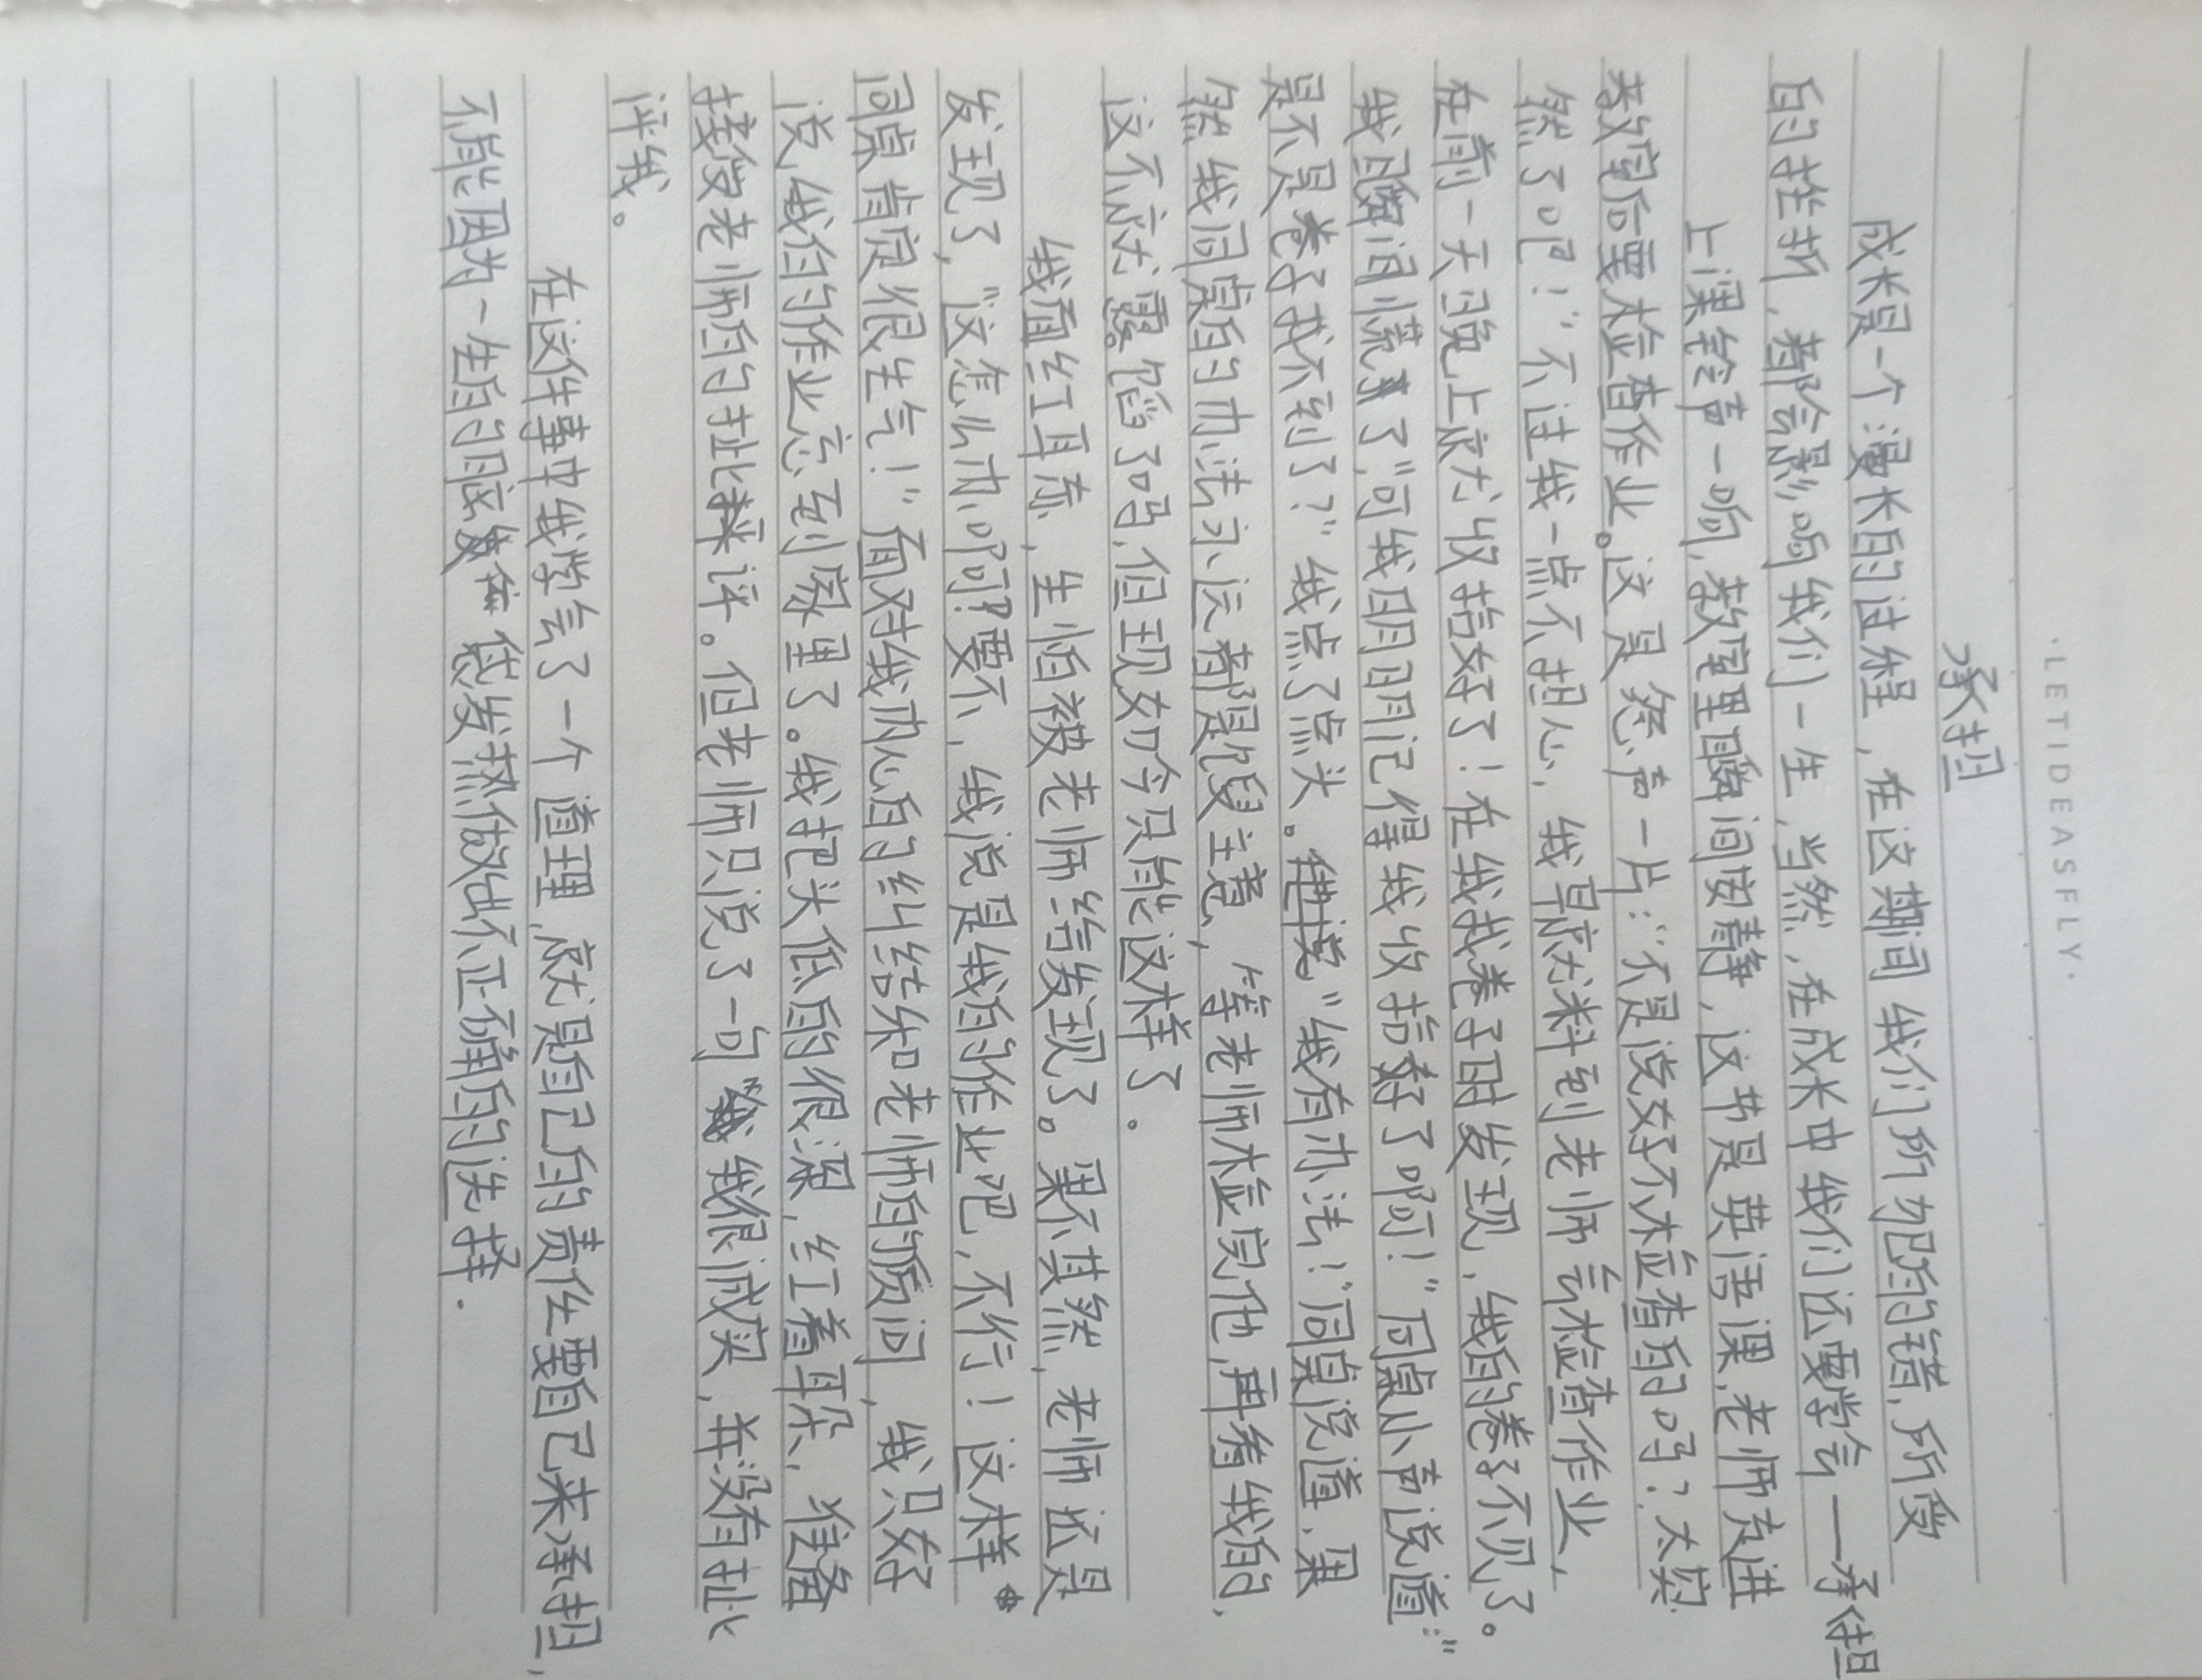 ·LETIDEASFLY·
承担
成长是一个漫长的过程，在这期间我们所犯的错，所受
的挫折，都会影响我们一生，当然，在成长中我们还要学会——承担
上课铃声一响，教室里瞬间安静，这节是英语课，老师走进
教室后要检查作业。这是怨声一片：“不是说好不检查的吗？太突
然了吧！”不过我一点不担心，我早就料到老师会检查作业，
在前一天的晚上就收拾好了！在我找卷子时发现，我的卷子不见了。
我瞬间慌了“可我明明记得我收拾好了啊！”同桌小声说道：“
是不是卷子找不到了？”我点了点头。“我有办法！”同桌说道，果
然我同桌的办法永远都是馊主意，“等老师检完他，再看我的，
这不就露馅了吗，但现如今只能这样了．
我面红耳赤，生怕被老师给发现了。果不其然，老师还是
发现了，“这怎么办啊？要不，我说是我的作业吧，不行！这样
同桌肯定很生气！”面对我内心的纠结和老师的质问，我只好
说我的作业忘到家里了。我把头低的很深，红着耳朵，准备
接受老师的批评。但老师只说了一句“我很诚实，并没有批
评我。
在这件事中我学会了一个道理，就是自己的责任要自己来承担，
不能因为一生的脑发热做出不正确的选择．